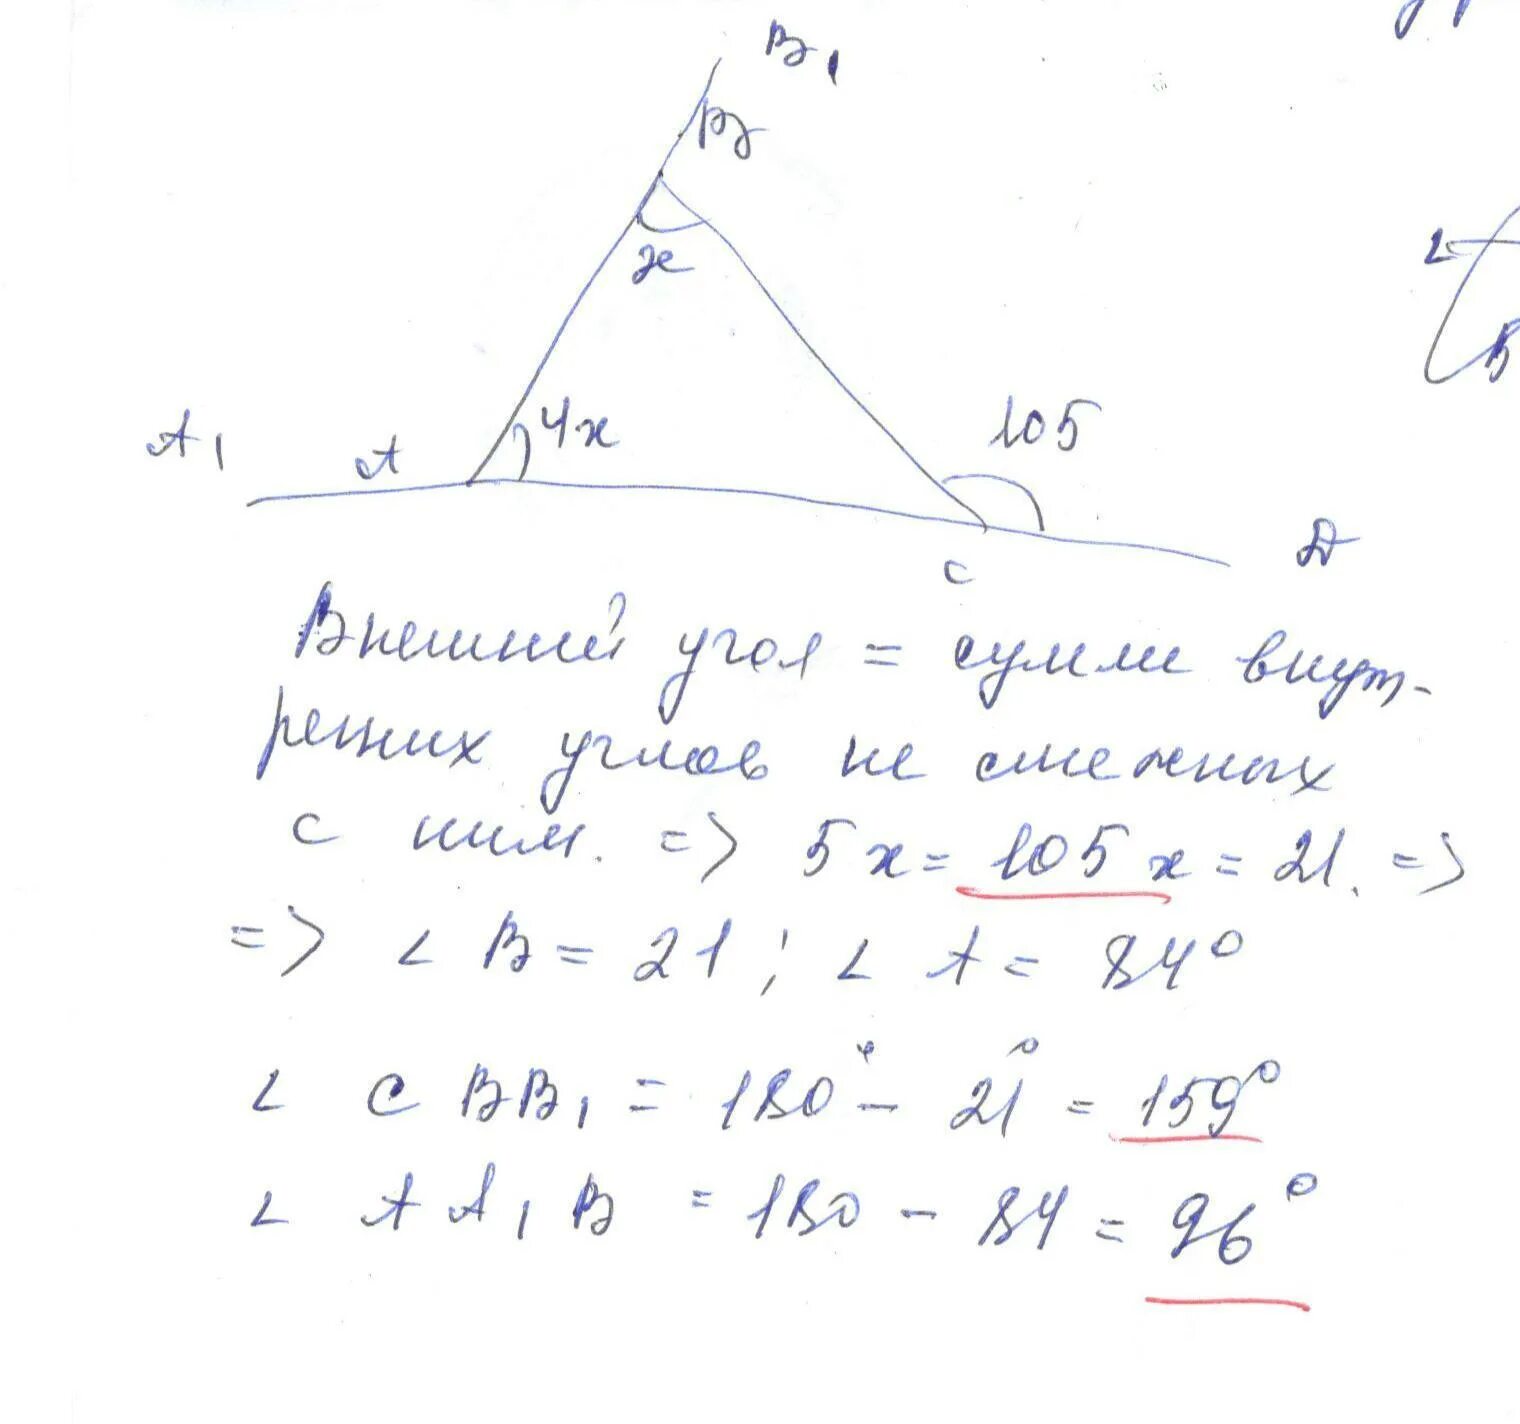 B₁
B
x
4x
105
A₁
A
C
D
L
B
Внешний угол = сумме внут-
ренних углов не смежных
с ним. => 5x = 105 x = 21. =>
=> ∠ B = 21 ; ∠ A = 84°
∠ CBB₁ = 180° - 21° = 159°
∠ AA₁B = 180 - 84 = 96°